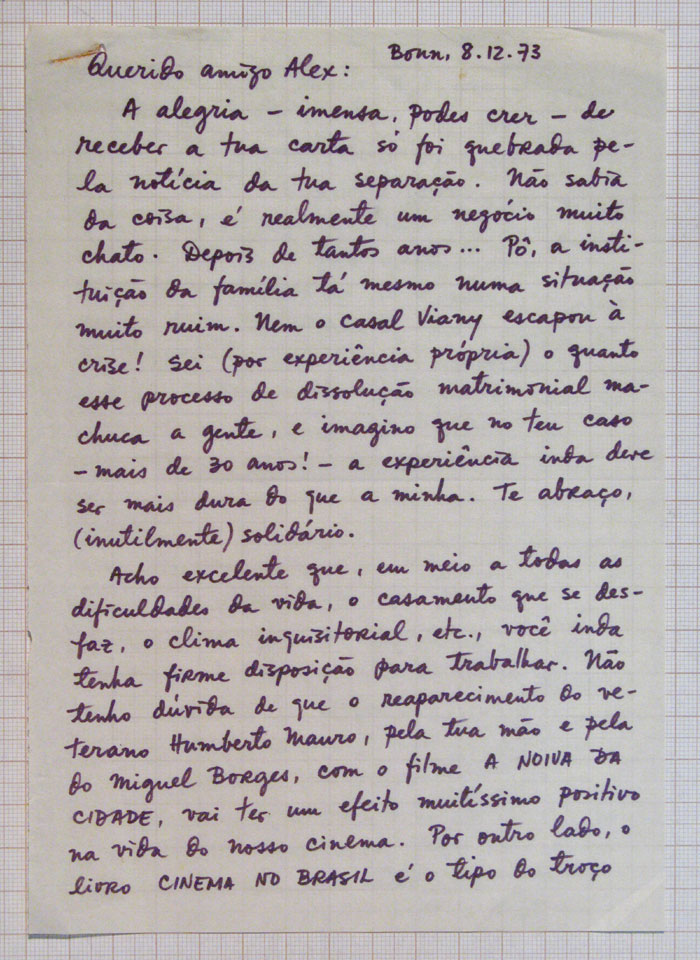 Bonn, 8.12.73
Querido amigo Alex:
A alegria – imensa, podes crer – de
receber a tua carta só foi quebrada pe-
la notícia da tua separação. Não sabia
da coisa, é realmente um negócio muito
chato. Depois de tantos anos... Pô, a insti-
tuição da família tá mesmo numa situação
muito ruim. Nem o casal Viany escapou à
crise! Sei (por experiência própria) o quanto
esse processo de dissolução matrimonial ma-
chuca a gente, e imagino que no teu caso
– mais de 30 anos! – a experiência inda deve
ser mais dura do que a minha. Te abraço,
(inutilmente) solidário.
Acho excelente que, em meio a todas as
dificuldades da vida, o casamento que se des-
faz, o clima inquisitorial, etc., você inda
tenha firme disposição para trabalhar. Não
tenho dúvida de que o reaparecimento do ve-
terano Humberto Mauro, pela tua mão e pela
do Miguel Borges, com o filme A NOIVA DA
CIDADE, vai ter um efeito muitíssimo positivo
na vida do nosso cinema. Por outro lado, o
livro CINEMA NO BRASIL é o tipo do troço